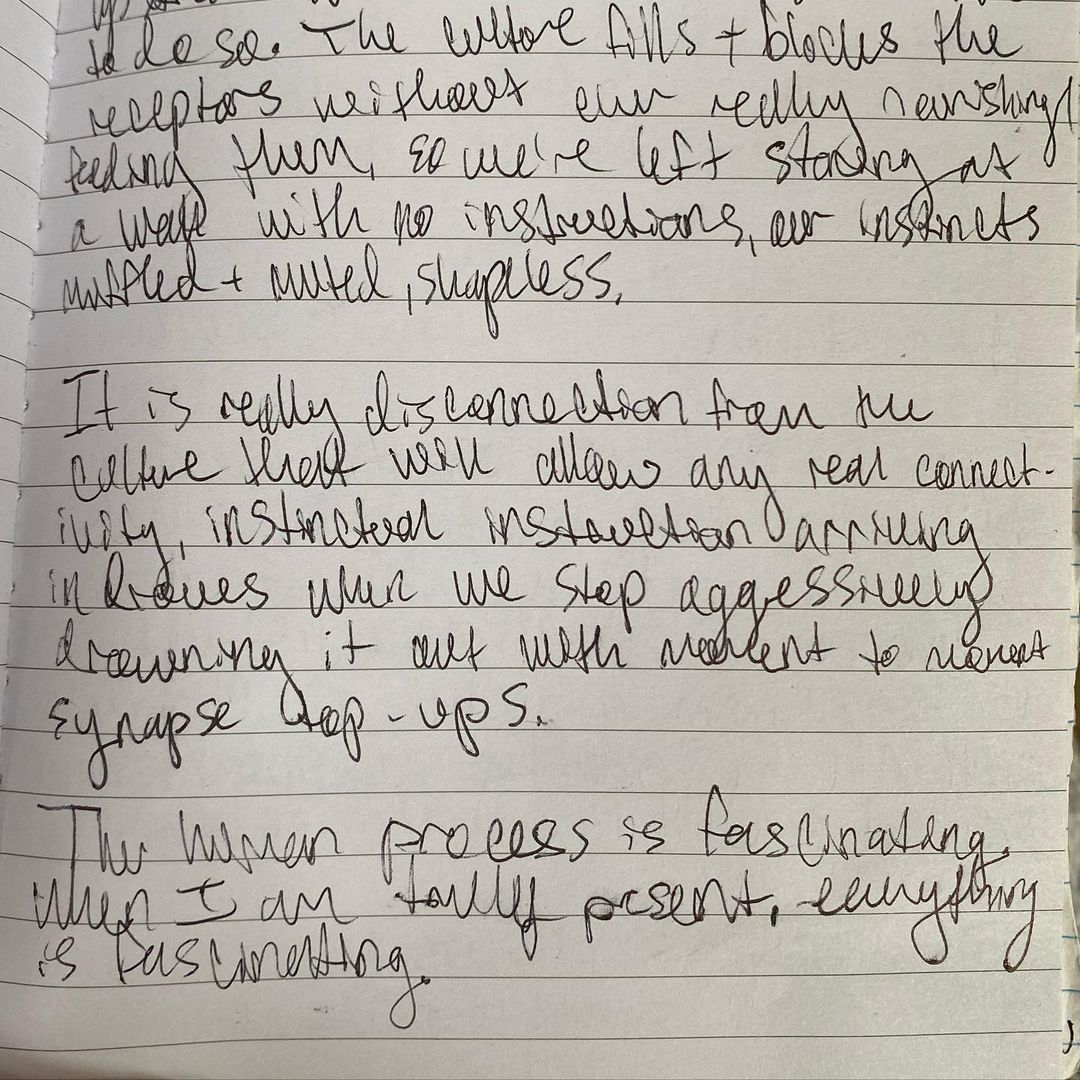 to do so. The culture fills + blocks the
receptors without ever really nourishing/
feeding them, so we're left staring at
a wall with no instructions, our instincts
muffled + muted, shapeless.
It is really disconnection from the
culture that will allow any real connect-
ivity, instinctual instruction arriving
in droves when we stop aggressively
drowning it out with moment to moment
synapse top-ups.
The human process is fascinating.
When I am fully present, everything
is fascinating.